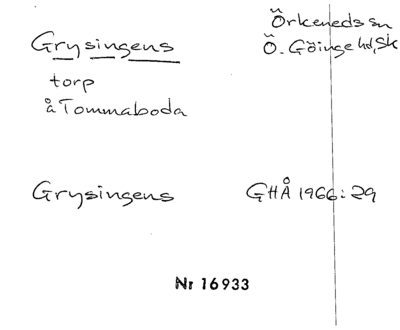 Grysingens
Örkeneds sn
Ö. Göinge hd, Sk
torp
å Tommaboda
Grysingens
GHÅ 1966: 29
Nr 16933